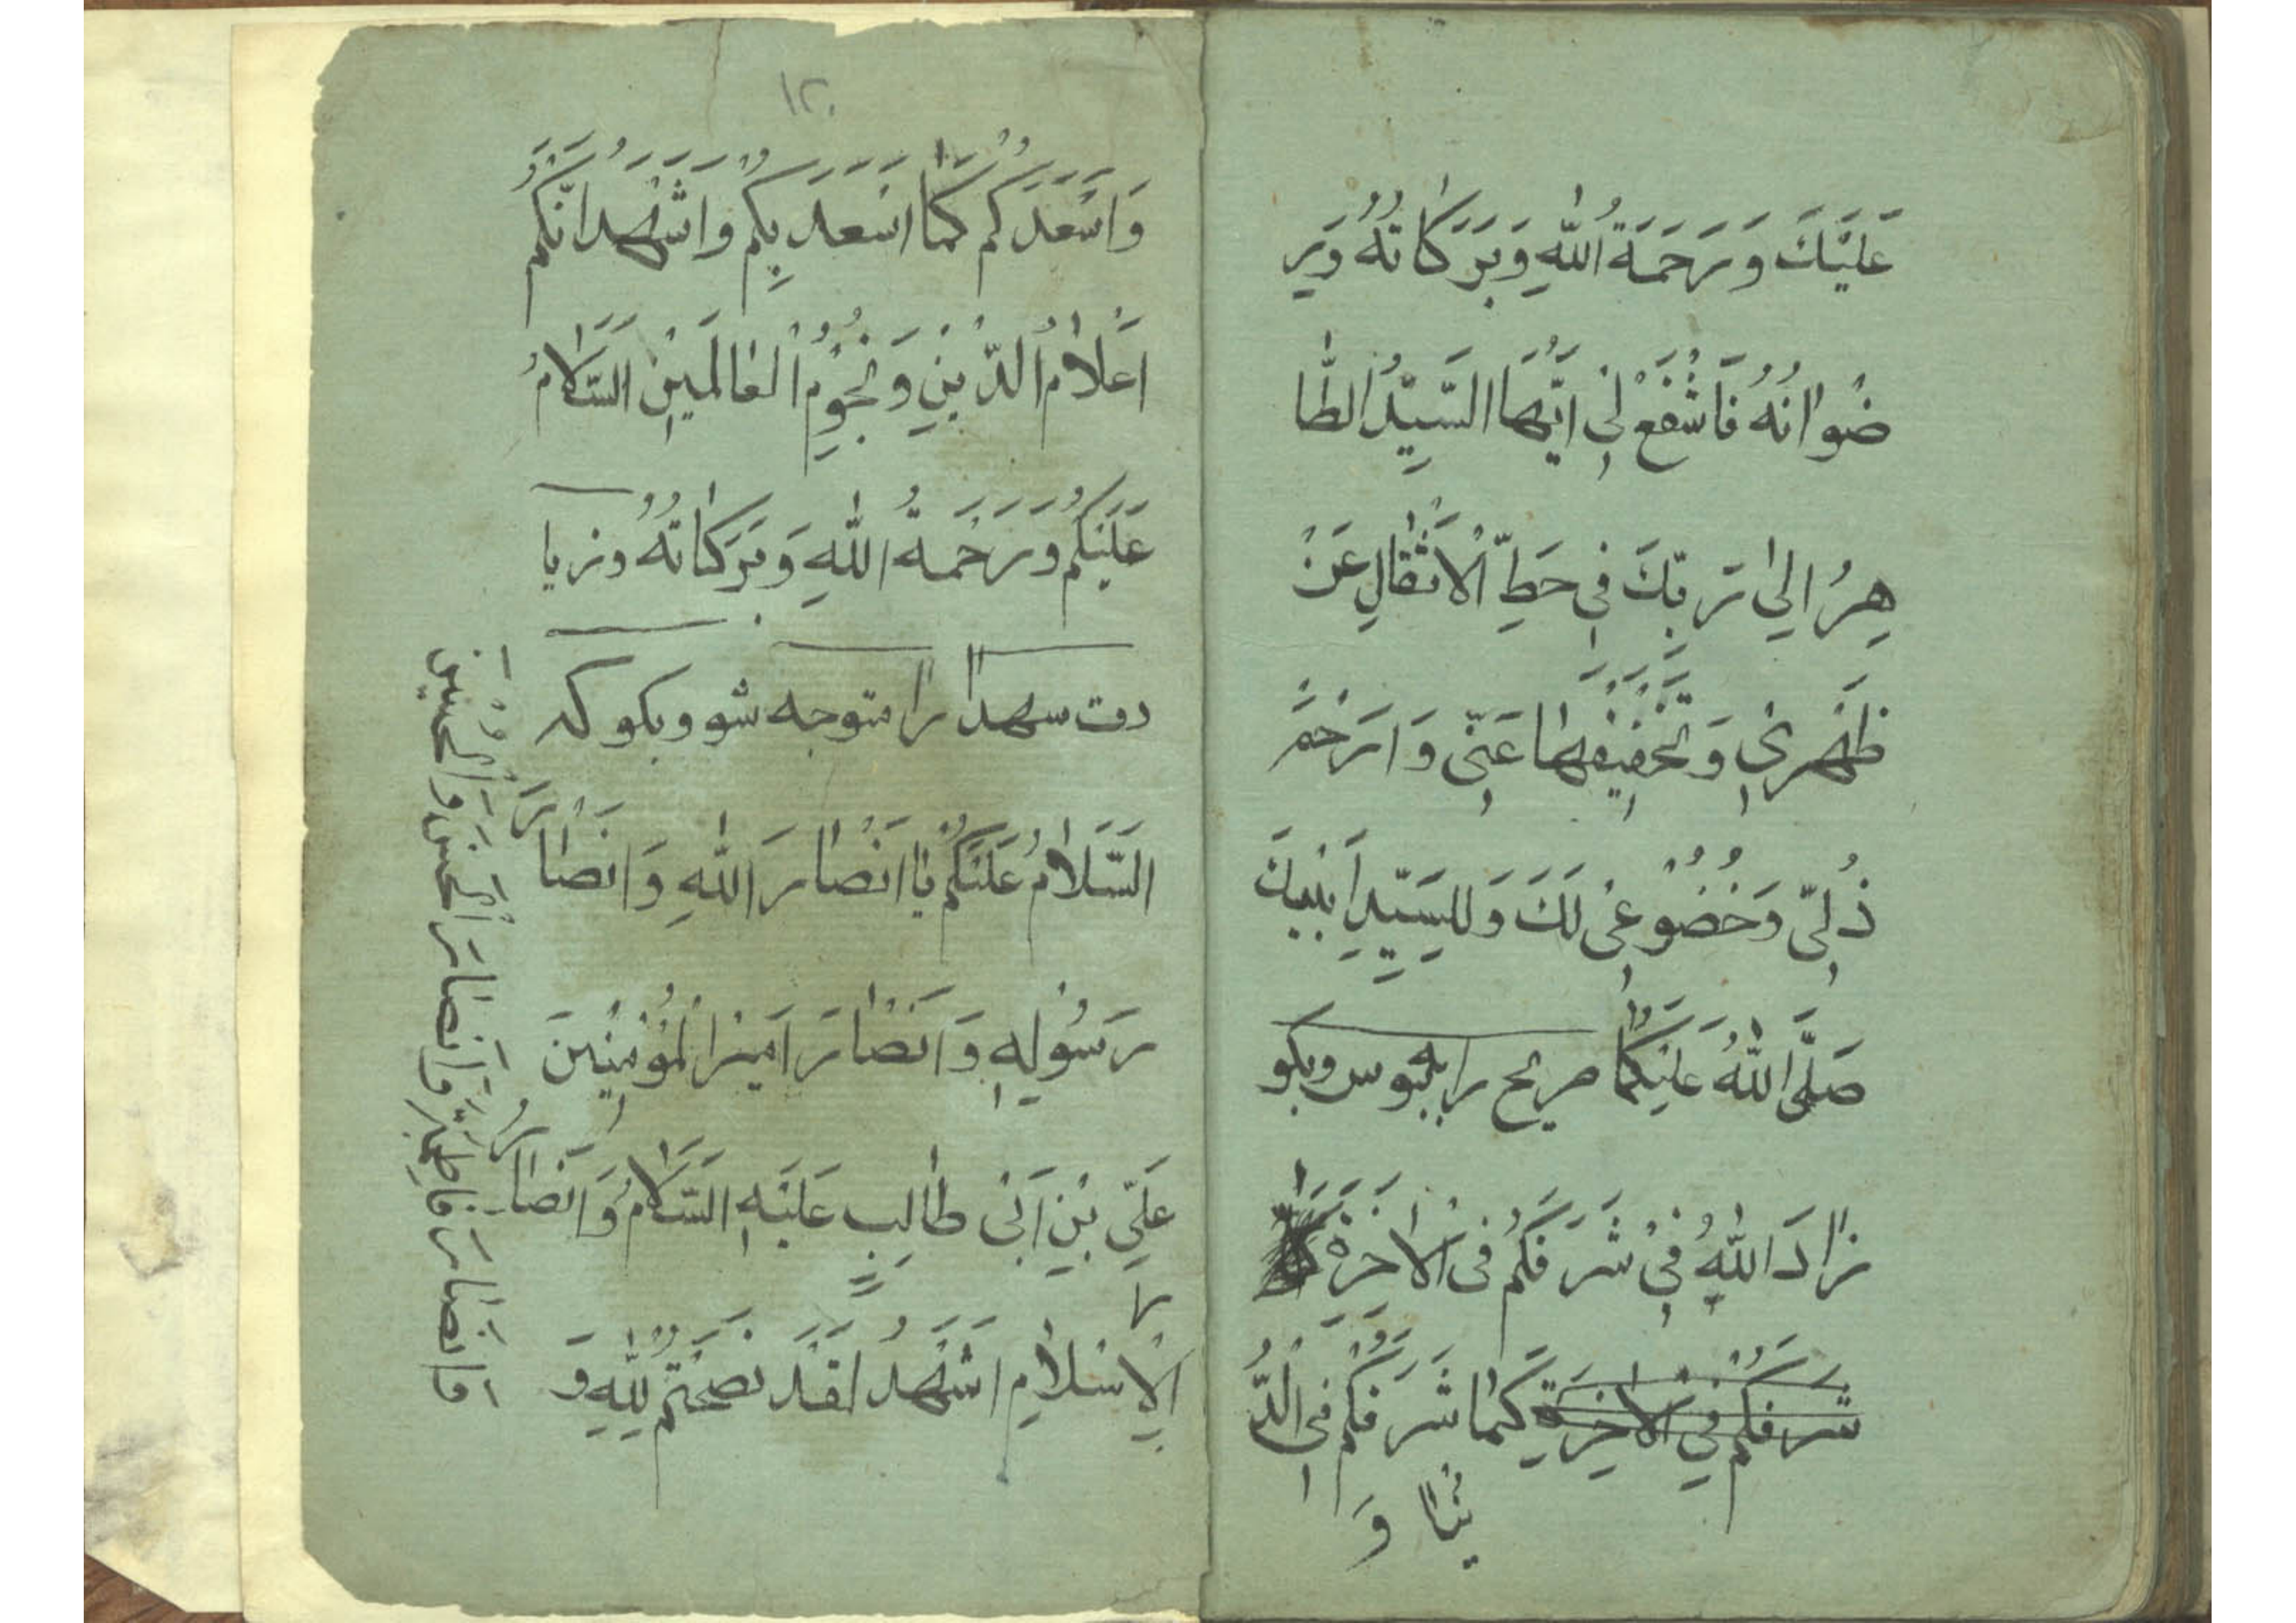 عَلَيْكَ وَرَحْمَةُ اللّٰهِ وَبَرَكَاتُهُ وَرِ
ضْوانُهُ فَاشْفَعْ لِي اَيُّهَا السَّيِّدُ الطّا
هِرُ اِلىٰ رَبِّكَ فِي حَطِّ الْاَثْقالِ عَنْ
ظَهْرِي وَتَخْفِيفِهٰا عَنّي وَارْحَمْ
ذُلّي وَخُضُوعِي لَكَ وَلِلسَّيِّدِ اَبيكَ
صَلَّى اللّٰهُ عَلَيْكُمَا ضريح را ببوس وبكو
زٰادَ اللّٰهُ فِي شَرَفِكُمْ فى الْاٰخِرَةِ
شَرَفكُمْ فِي الاخِرَةِ كَمٰا شَرَّفَكُمْ فِي الدُّ
نْيٰا وَ
١٢٠
وَاَسْعَدَكُمْ كَمٰا اَسْعَدَ بِكُمْ وَاَشْهَدُ اَنَّكُمْ
اَعْلامُ الدّينِ وَنُجُومُ الْعٰالَمينَ السَّلامُ
عَلَيْكُمْ وَرَحْمَةُ اللّٰهِ وَبَرَكاتُهُ وزيا
رت شهدا را متوجه شو وبكو كه
السَّلامُ عَلَيْكُمْ يٰا اَنْصارَ اللّٰهِ وَاَنْصٰارَ
رَسُولِهِ وَاَنْصٰارَ اَميرِ الْمُؤْمِنينَ
عَلِيِّ بْنِ اَبي طٰالِبٍ عَلَيْهِ السَّلامُ وَاَنْصٰارَ
وَاَنْصارَ فاطِمَةَ وَاَنْصارَ الْحَسَنِ وَالْحُسَيْنِ
الْاِسْلامِ اَشْهَدُ لَقَدْ نَصَحْتُمْ لِلّٰهِ وَ